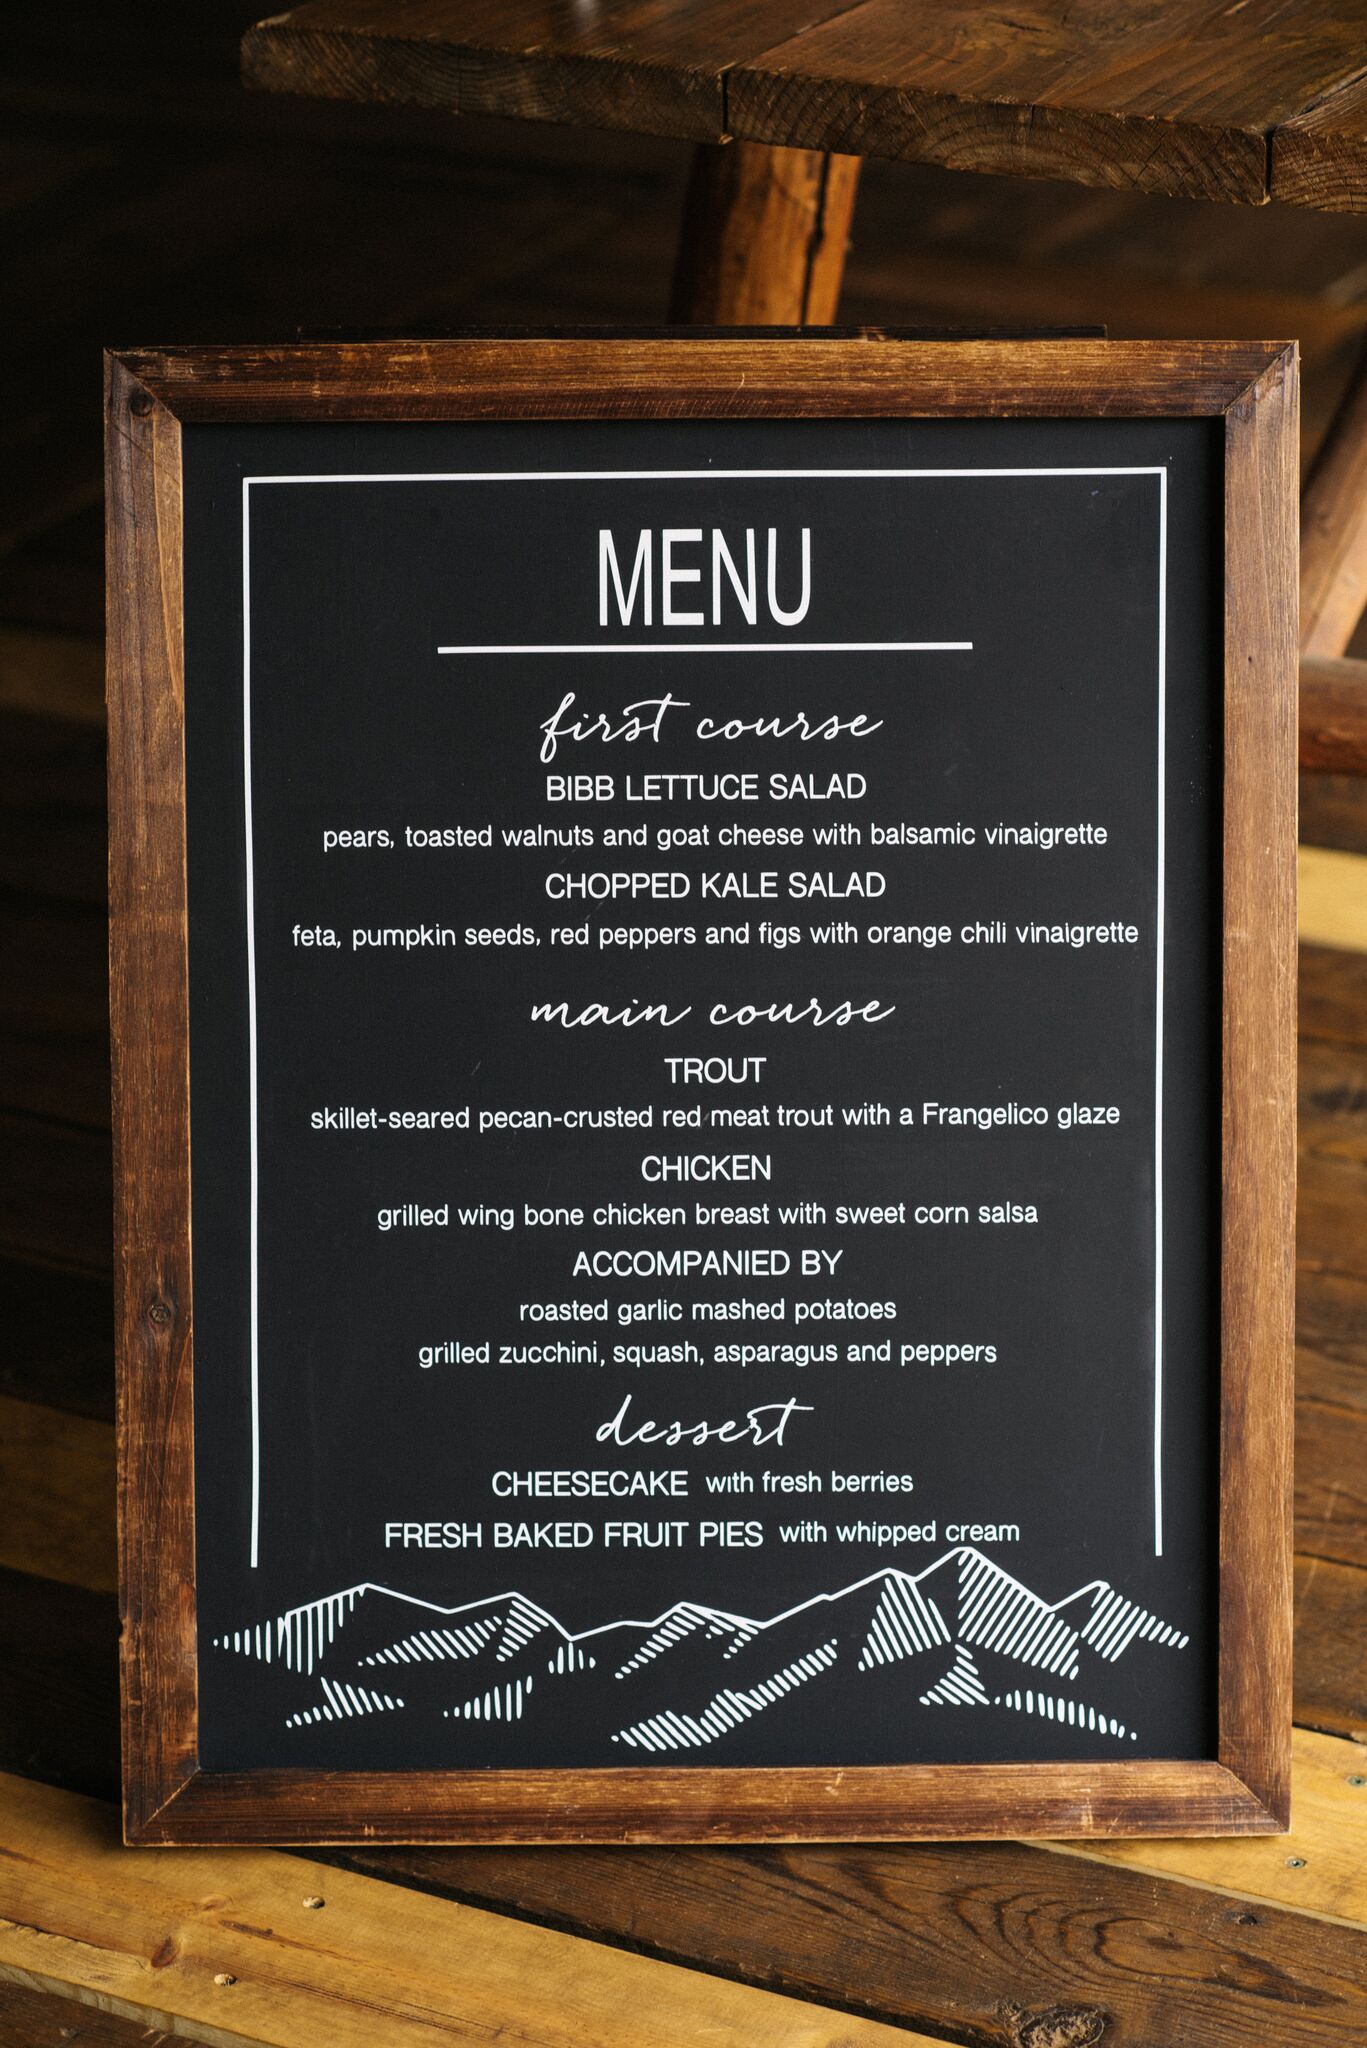 MENU
first course
BIBB LETTUCE SALAD
pears, toasted walnuts and goat cheese with balsamic vinaigrette
CHOPPED KALE SALAD
feta, pumpkin seeds, red peppers and figs with orange chili vinaigrette
main course
TROUT
skillet-seared pecan-crusted red meat trout with a Frangelico glaze
CHICKEN
grilled wing bone chicken breast with sweet corn salsa
ACCOMPANIED BY
roasted garlic mashed potatoes
grilled zucchini, squash, asparagus and peppers
dessert
CHEESECAKE with fresh berries
FRESH BAKED FRUIT PIES with whipped cream